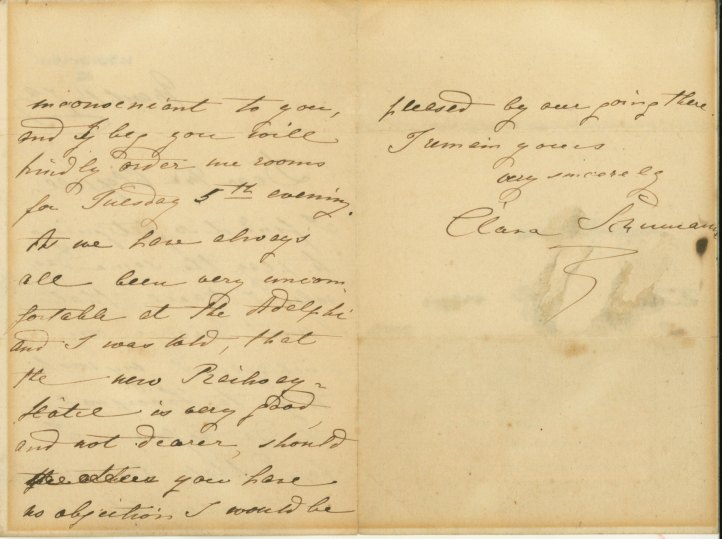 inconvenient to you,
and I beg you will
kindly order me rooms
for Tuesday 5th evening.
As we have always
all been very uncom
fortable at the Adelphi
and I was told, that
the new Railway-
Hôtel is very good,
and not dearer, should
you have
no objection I would be
pleased by our going there.
I remain yours
very sincerely
Clara Schumann